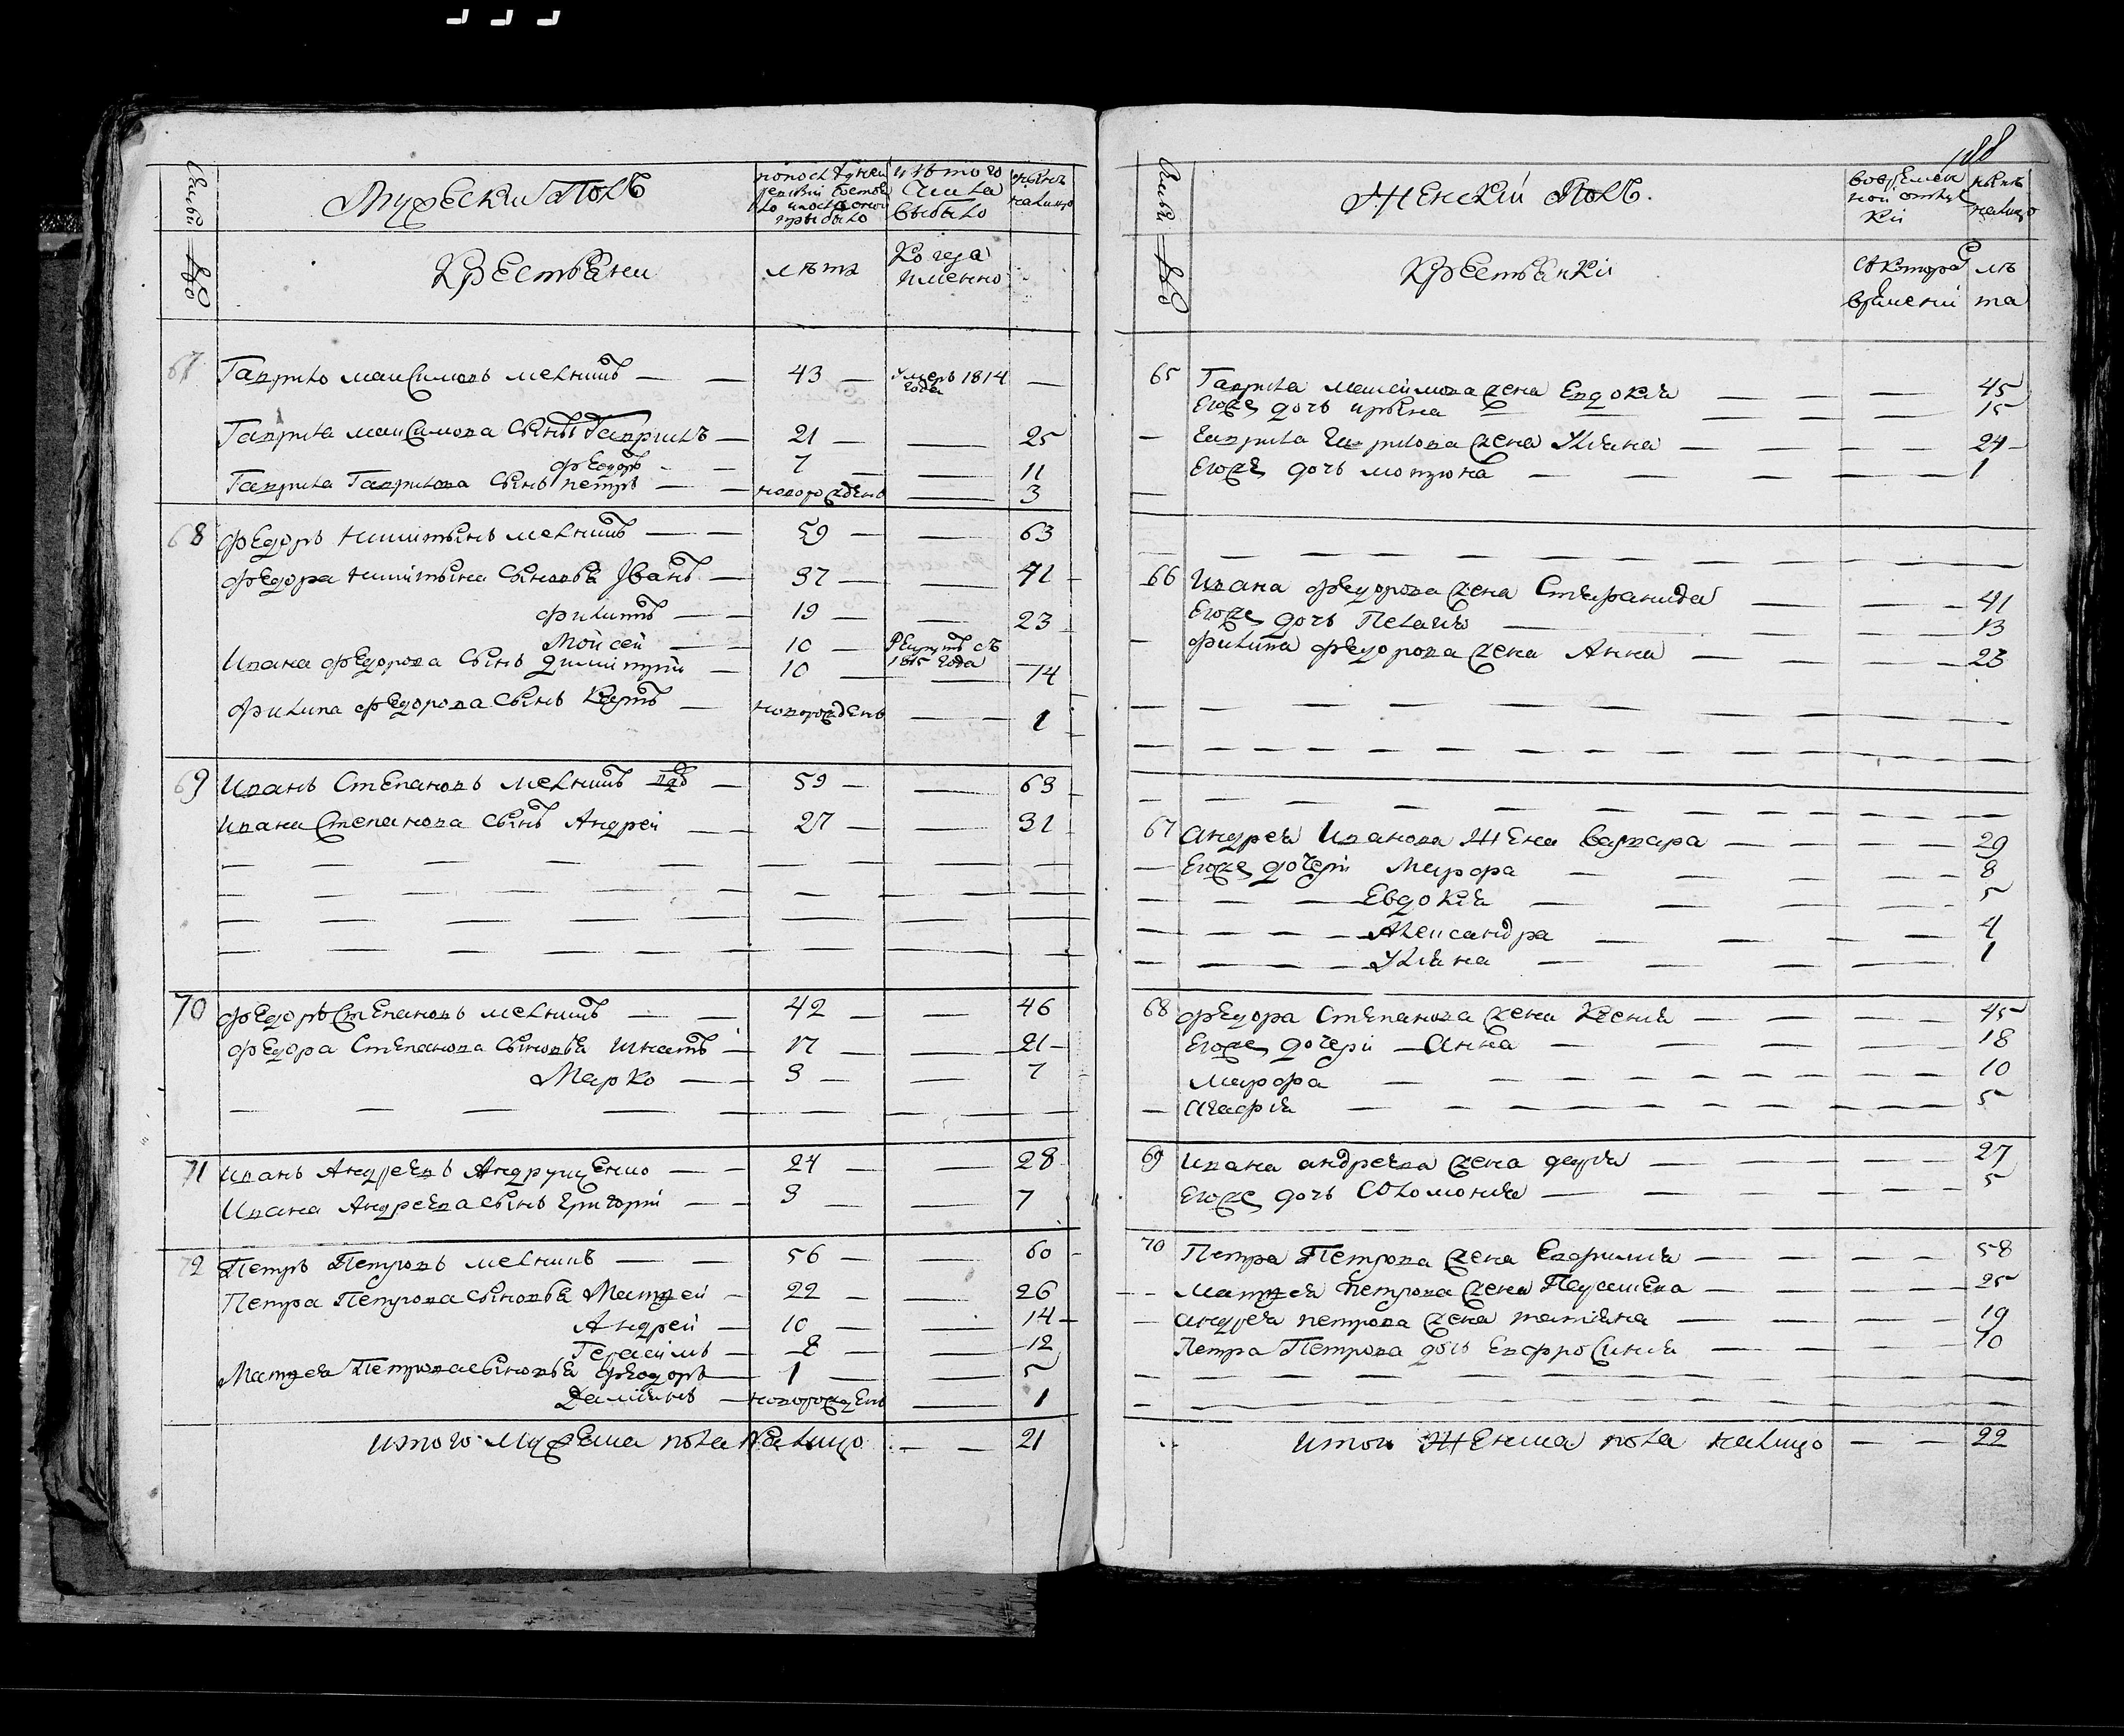 188
Семьи
Мужески Полъ
по последней ревизии состояло и после оной прибыло
Изъ того числа выбыло
ныне налицо
Крестьяни
лета
Когда именно
67 Гаврило максимовъ мелникъ — — 43 — умеръ 1814 года —
Гаврила максимова сынъ Гаврилъ — 21 — — 25
федоръ — — 7 — — 11
Гаврила Гаврилова сынъ петръ — — новорожденъ — 3
68 федоръ никитинъ мелникъ — — 59 — — 63
федора никитина сыновья Иванъ — 37 — — 41
филипъ — — 19 — — 23
Мойсей — — 10 — Рекрутъ съ 1815 года
Ивана федорова сынъ димитрий — 10 — — 14
филипа федорова сынъ — новорожденъ — — 1
69 Иванъ Степановъ мелникъ — 59 — — 63
Ивана Степанова сынъ Андрей — — 27 — — 31
70 федоръ Степановъ мелникъ — — 42 — — 46
федора Степанова сыновья Игнатъ — 17 — — 21
Марко — — 3 — — 7
71 иванъ Андреевъ Андрущенко — — 24 — — 28
Ивана Андреева сынъ григорий — — 3 — — 7
72 Петръ Петровъ мелникъ — — 56 — — 60
Петра Петрова сыновья Матвей — 22 — — 26
Андрей — 10 — — 14
Герасимъ — 8 — — 12
Матвея Петрова сыновья федоръ — 1 — — 5
Дамиянъ — новорожденъ — 1
итого мужеска пола налицо — — 21
Семьи
Женский Полъ
во временной отлучки
ныне налицо
Крестьянки
С котораго времени
лета
65 Гаврила максимова жена Евдокия — — — 45
Егоже дочь ирина — — — 15
— гаврила гаврилова жена Улияна — — — 24
Егоже дочь мотрона — — — 1
66 Ивана федорова жена Стефанида — — — 41
Егоже дочь Пелагия — — — 13
— филипа федорова жена Анна — — — 23
67 андрея Иванова Жена варвара — — — 29
— Егоже дочери Мавра — — — 8
Евдокия — — — 5
Александра — — — 4
Улияна — — — 1
68 федора Степанова жена Ксения — — — 45
Егоже дочери — Анна — — — 18
Марфа — — — 10
— агафия — — — 5
69 ивана андреева жена дария — — — 27
Егоже дочь Соломония — — — 5
70 Петра Петрова жена Евфимия — — — 58
— Матвея петрова жена — — — 25
— андрея петрова жена татияна — — — 19
Петра Петрова дочь Евфросиния — — — 10
итого Женска пола налицо — — 22